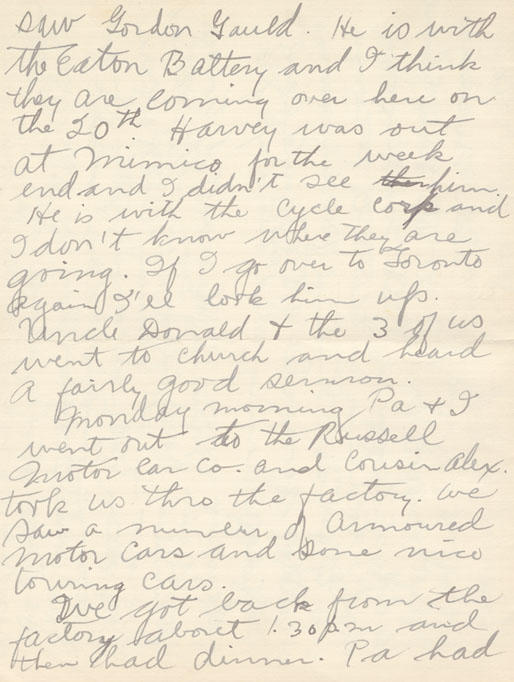 saw Gordon Gauld. He is with
the Eaton Battery and I think
they are coming over here on
the 20th. Harvey was out
at Mimico for the week
end and I didn't see him.
He is with the Cycle Corp and
I don't know where they are
going. If I go over to Toronto
again I'll look him up.
Uncle Donald & the 3 of us
went to church and heard
a fairly good sermon.
Monday morning Pa & I
went out to the Russell
Motor Car Co. and Cousin Alex.
took us thro the factory. We
saw a number of Armoured
Motor Cars and some nice
touring cars.
We got back from the
factory about 1.30 pm and
then had dinner. Pa had